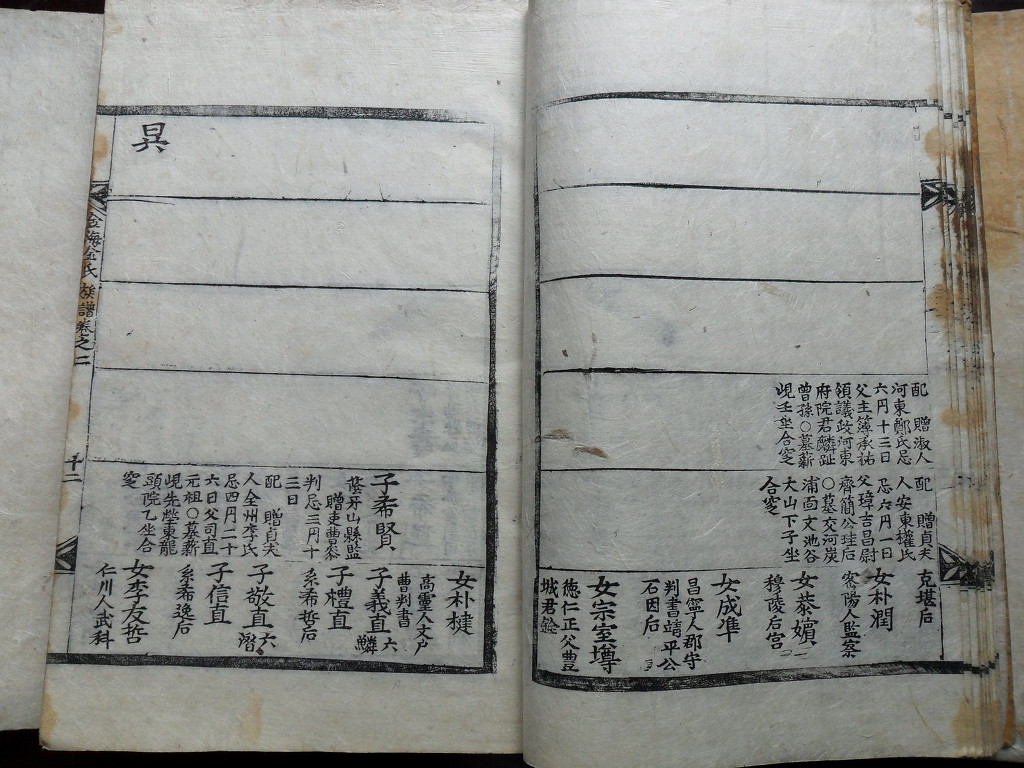 配 贈淑人
河東鄭氏忌
六月十三日
父主簿承祐
領議政河東
府院君麟趾
曾孫○墓薪
峴壬坐合窆
配 贈貞夫
人安東權氏
忌六月一日
父璋吉昌尉
齊簡公珪后
○墓交河炭
浦面文池谷
大山下子坐
合窆
克堪后
女朴潤
密陽人監察
女恭嬪
穆陵后宮
女成準
昌寧人郡守
判書靖平公
石因后
女宗室墫
德仁正父豊
城君銓
女朴楗
高靈人文戶
曹判書
子希賢
蔭牙山縣監
贈吏曹參
判忌三月十
三日
配 贈貞夫
人全州李氏
忌四月二十
六日父司直
元祖○墓薪
峴先塋東龍
頭院乙坐合
窆
子義直 六
鱗
子禮直
系希哲后
子敬直 六
潛
子信直
系希逸后
女李友哲
仁川人武科
昗
金海金氏族譜卷之二
十二